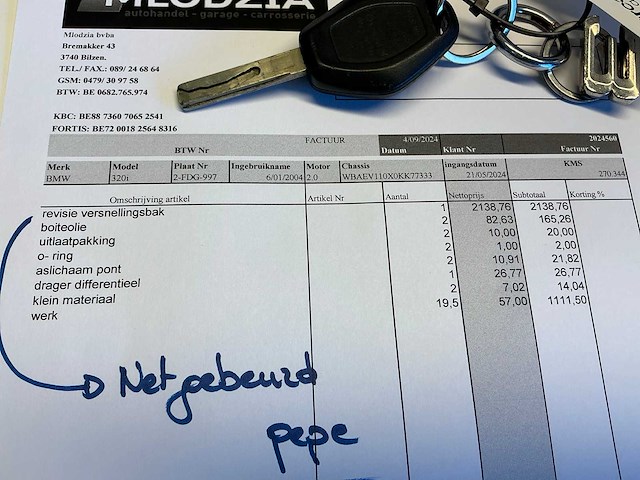 MŁODZIA
autohandel - garage - carrosserie
Mlodzia bvba
Bremakker 43
3740 Bilzen.
TEL./ FAX.: 089/ 24 68 64
GSM: 0479/ 30 97 58
BTW: BE 0682.765.974
KBC: BE88 7360 7065 2541
FORTIS: BE72 0018 2564 8316
FACTUUR 4/09/2024 2024560
BTW Nr Datum Klant Nr Factuur Nr
Merk Model Plaat Nr Ingebruikname Motor Chassis ingangsdatum KMS
BMW 320i 2-FDG-997 6/01/2004 2.0 WBAEV110X0KK77333 21/05/2024 270 344
Omschrijving artikel Artikel Nr Aantal Nettoprijs Subtotaal Korting %
revisie versnellingsbak 1 2138,76 2138,76
boiteolie 2 82,63 165,26
uitlaatpakking 2 10,00 20,00
o- ring 2 1,00 2,00
aslichaam pont 2 10,91 21,82
drager differentieel 1 26,77 26,77
klein materiaal 2 7,02 14,04
werk 19,5 57,00 1111,50
Net gebeurd
pepe